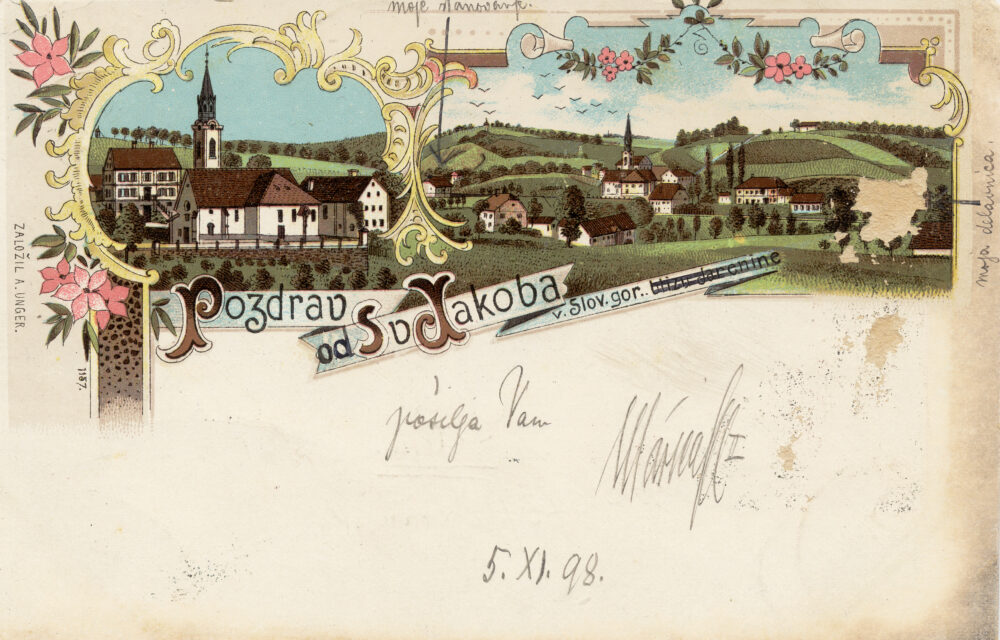 moje stanovanje.
moja delavnica.
ZALOŽIL A. UNGER.
1157.
Pozdrav
od Sv Jakoba
v. Slov. gor.. blizu Jarenine
pošilja Vam
5. XI. 98.